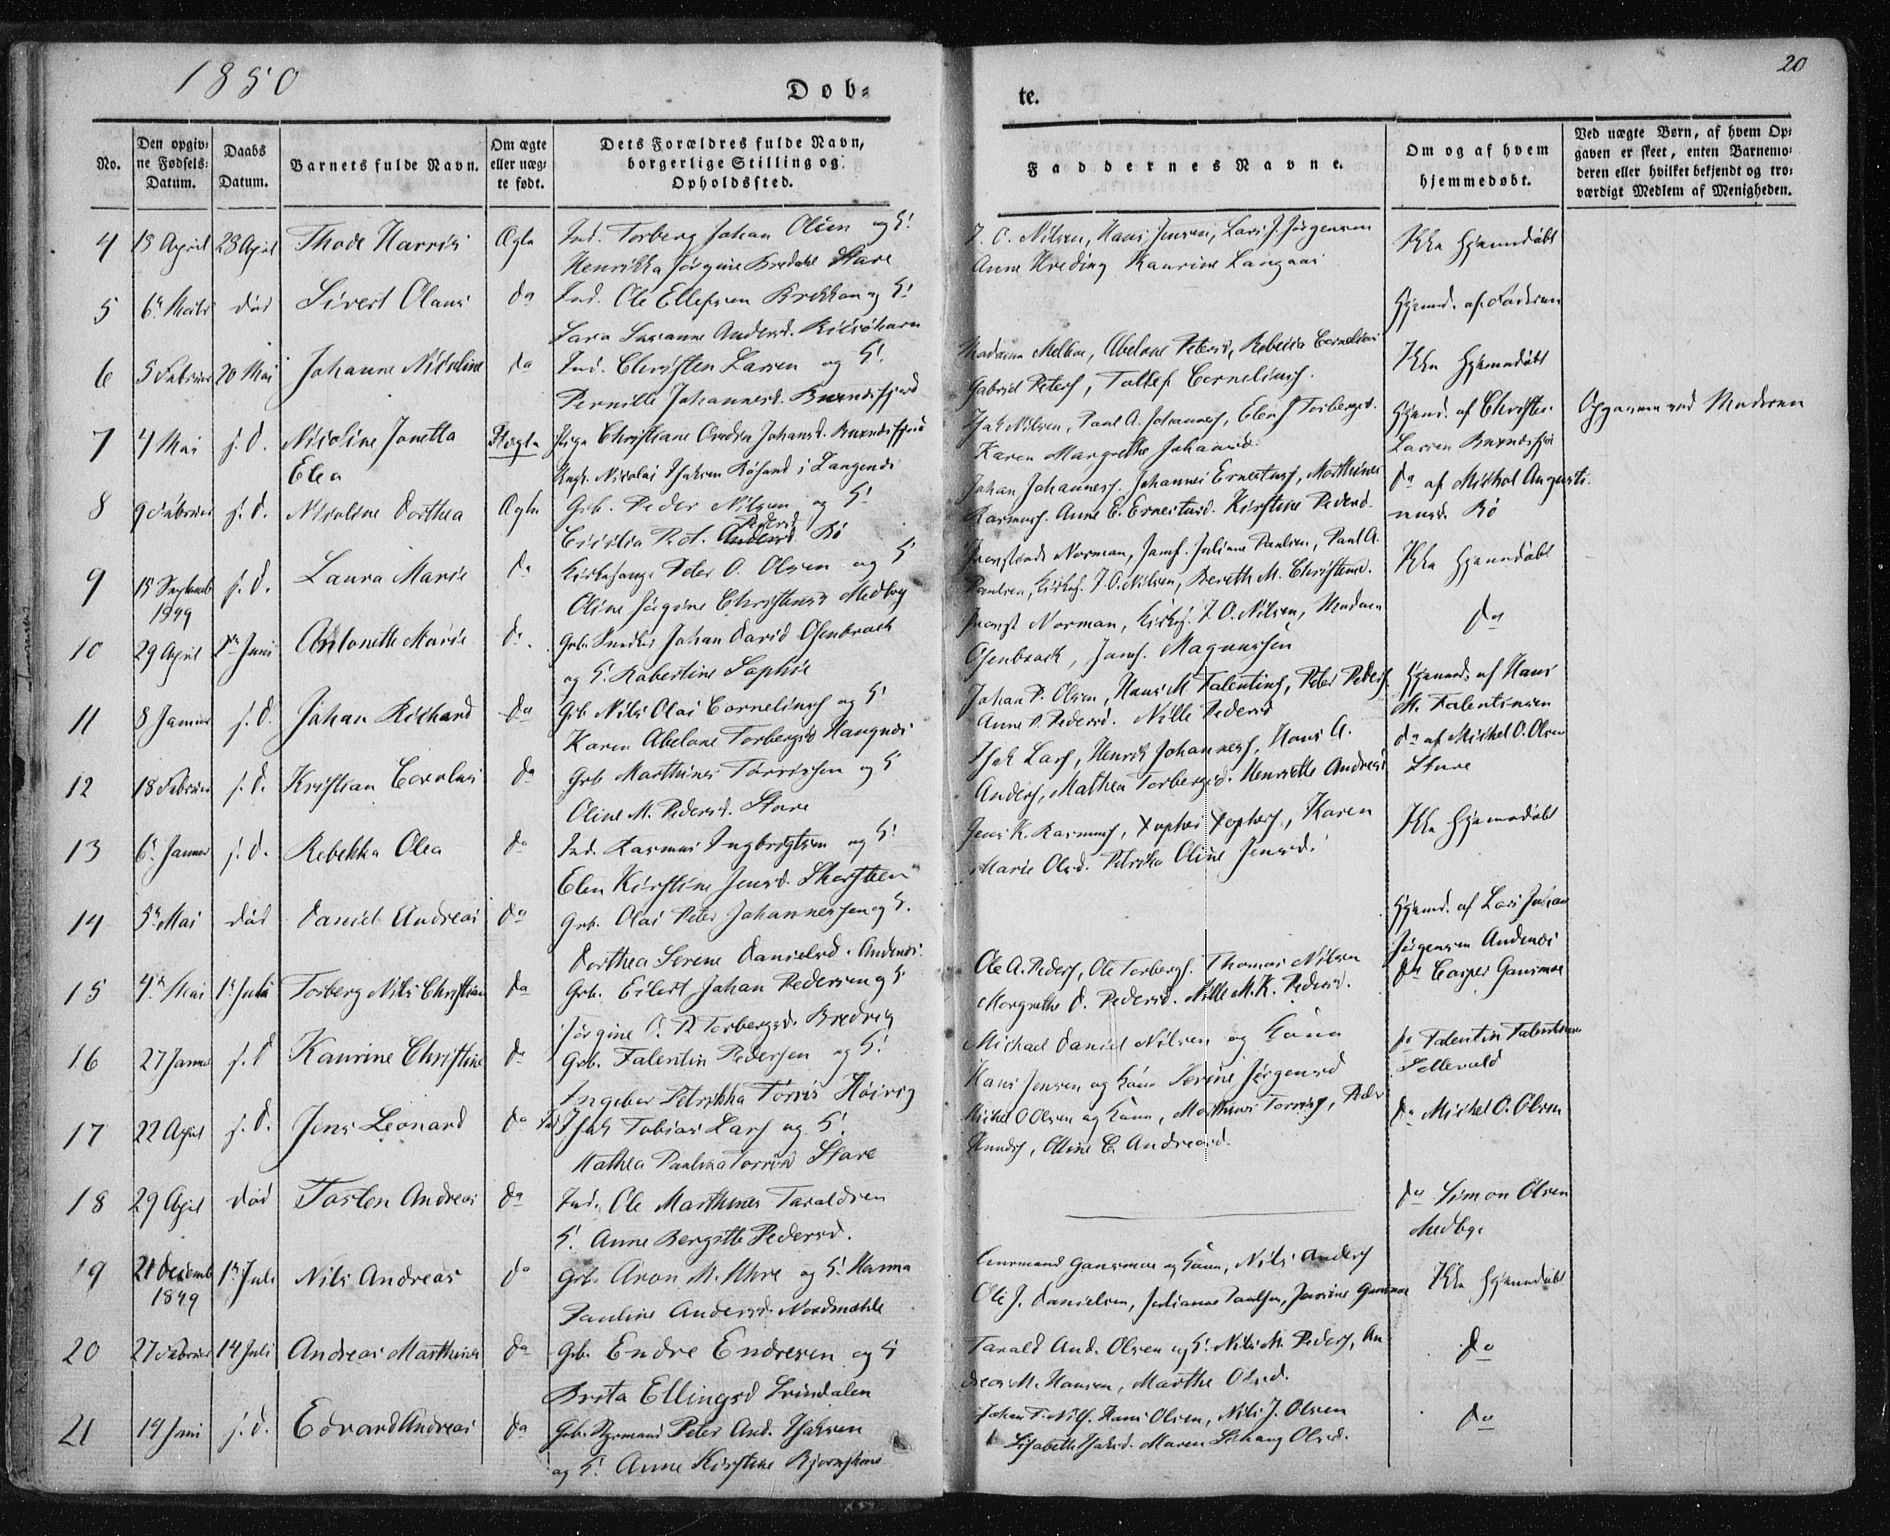 1850
Døb-
te.
20
No.
Den opgiv-
ne Fødsels-
Datum.
Daabs
Datum.
Barnets fulde Navn.
Om ægte
eller uæg-
te født.
Dets Forældres fulde Navn,
borgerlige Stilling og
Opholdssted.
Faddernes Navne.
Om og af hvem
hjemmedøbt.
Ved uægte Børn, af hvem Op-
gaven er skeet, enten Barnemo-
deren eller hvilket bekjendt og tro-
værdigt Medlem af Menigheden.
4 13 April 28 April Thode Harris Ægte Ind. Torberg Johan Olsen og H. J. O. Nilsen, Hans Jensen, Lars J. Jørgensen Ikke hjemmedøbt
Henrikka Jørgine Bredahl Stave Anne Kaurine Langaas
5 6te Mai død Sivert Olaus do Ind. Ole Ellefsen Brekkan og H. Hjemd. af Faderen
Sara Susanne Andersd.
6 5 Februar 20 Mai Johanne Nikoline do Ind. Christen Larsen og H. Madame Melboe, Abelone Petersd, Rebekka Cornelius Ikke hjemmedøbt
Pernille Johannesd. Buxnæsfjord Gabriel Peters, Tollef Cornelius.
7 4 Mai s. D. Nikoline Jonetta Uægte Pige Christiane Johansd. Buxnæsfjord Isak Nilsen, Paul A. Johannes, Elen Torbergsd. Hjemd. af Christen Opgaven ved Moderen
Elea Ungk. Nikolai Isaksen Røsand i Langenæs Karen Margrethe Johansd. Larsen Buxnæsfjor
8 9 Februar s. D. Nikoline Dorthea Ægte Grb. Peder Nilsen og H. Johan Johannes. Johannes Ernestus, Marthines do af Mikal Augusti-
Cicilia Pet. Pedersd Bø Rasmus. Anne C. Ernestusd. Kirstine Pedersd. nusd. Bø
9 15 Septemb s. D. Laura Marie do Kirkesang. Peter O. Olsen og H Norman, Jomf. Juliane Paulsen, Paul A. Ikke hjemmedøbt
1849 Oline Jørgine Christensd Medby Paulsen, Kirkes. J. O. Nilsen, Bereth M. Christensd.
10 29 April Juni Antonette Marie do. Grb. Snedker Johan David Osenbrock Provst Norman, Kirkes. J. O. Nilsen, Madam do
og H. Robertine Sophie Osenbrock, Jomf. Magnussen
11 8 Januar s. D. Johan Rikhard do Grb Nils Olai Cornelius og H Johan P. Olsen, Hans M Falentins, Peter Peders Hjemd. af Hans
Karen Abelone Torbergsd Haugnæs Anne P. Pedersd. Nille Pedersd M. Falentinsen
12 18 Februar s. D. Kristian Carolus do Grb Marthines Tørrissen og H Isak Lars, Henrik Johannes, Hans A. do af Mikel O. Olsen
Oline M. Pedersd. Stave Anders, Mathea Torbergsd. Henriette Andreasd Stave
13 6te Januar s. D. Rebekka Olea do Ind. Rasmus Ingbrigtsen og H. Jens K. Rasmus, Xophei Xophers, Karen Ikke hjemmedøbt
Elen Kirstine Jensd. Skarsteen Marie Olsd. Petrika Oline Jensd.
14 5te Mai død Daniel Andreas do Grb. Olai Peter Johannessen og H. Hjemd. af Lars Johan
Dorthea Serene Danielsd. Andenæs Jørgensen Andenæs
15 4de Mai 1ste Juli Torberg Nils Christian do Grb. Eilert Johan Pedersen og H Ole A. Peders, Ole Torbergs. Thomas Nilsen do Casper Gansmoe
Jørgine O. P. Torbergsd. Bredvig Margrethe D. Pedersd. Nille M. K. Pedersd.
16 27 Januar s. D Kaurine Christine do Grb. Falentin Pedersen og H. Michael Daniel Nilsen og Kone do Falentin Falentinsen
Ingebor Petrikka Tørris Høivig Hans Jensen og Kone Serine Jørgensd
17 22 April s. D. Jens Leonard do Ind Isak Tobias Lars og H. Mikel O Olsen og Kone, Marthines Tørris, Peder do Mikkel O. Olsen
Mathea Paulina Tørrisd Stave Knuds, Oline C. Andreasd.
18 29 April død Tosten Andreas do Ind. Ole Marthines Taraldsen do Simon Olsen
H. Anne Bergitte Pedersd. Medby.
19 21 Decemb 1ste Juli Nils Andreas do Grb. Aron M. Uhre og H. Hanna Gansmoe og Kone, Nils Anders Ikke hjemmedøbt
1849 Pauline Andersd. Nordmæhle Ole J. Danielsen, Julianne Paulsen, Gansmoe
20 27 Februar 14 Juli Andreas Marthines do Grb. Endre Endresen og H Tarald And. Olsen og H. Nils M. Peders, An do
Brita Ellingsd dreas M. Hansen, Marthe Olsd.
21 14 Juni s. d. Edvard Andreas do Grb. Styrmand Peter And. Isaksen Johan F. Nils. Hans Olsen, Nils J. Olsen do
og H. Anne Kirstine Bjørnskind Lisabeth Isaksd. Maren Olsd.